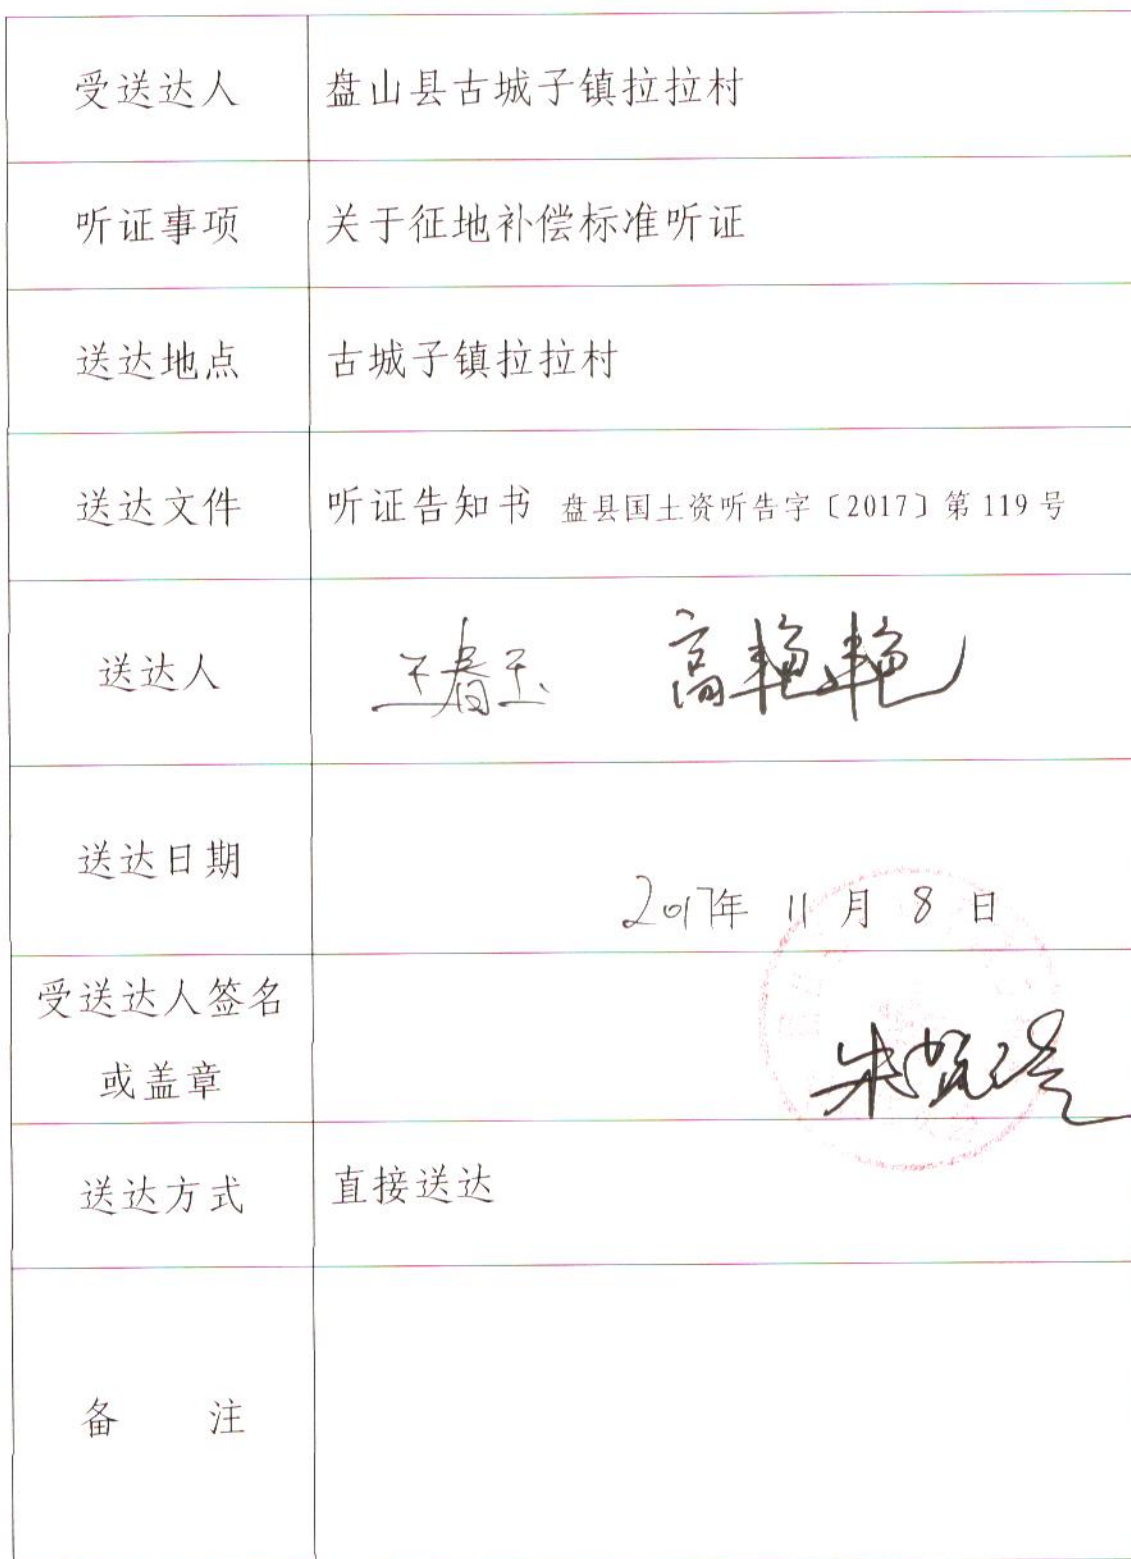 受送达人 盘山县古城子镇拉拉村
听证事项 关于征地补偿标准听证
送达地点 古城子镇拉拉村
送达文件 听证告知书 盘县国土资听告字〔2017〕第 119 号
送达人 王春玉 高艳艳
送达日期
2017年 11 月 8 日
受送达人签名
或盖章
送达方式 直接送达
备 注